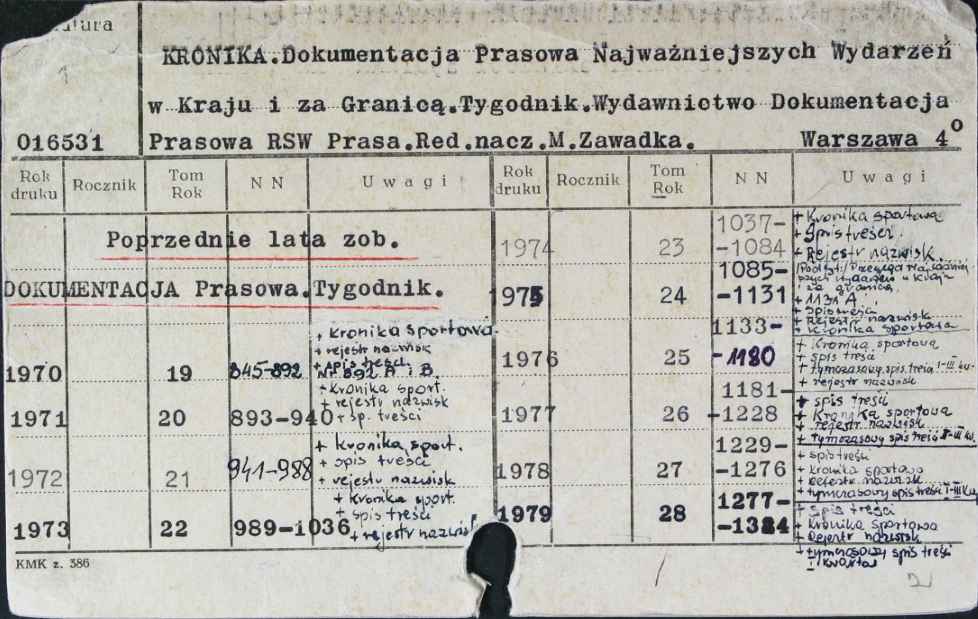 KRONIKA.Dokumentacja Prasowa Najważniejszych Wydarzeń
w Kraju i za Granicą.Tygodnik.Wydawnictwo Dokumentacja
016531 Prasowa RSW Prasa.Red.nacz.M.Zawadka. Warszawa 4°
Rok druku Rocznik Tom Rok N N Uwagi
Poprzednie lata zob.
DOKUMENTACJA Prasowa.Tygodnik.
1970 19 845-892 + kronika sportowa
+ rejestr nazwisk
+ spis treści
Nr 892 A i B.
1971 20 893-940 + kronika sport.
+ rejestr nazwisk
+ sp. treści
1972 21 941-988 + kronika sport.
+ spis treści
+ rejestr nazwisk
1973 22 989-1036 + kronika sport.
+ spis treści
+ rejestr nazwisk
Rok druku Rocznik Tom Rok N N Uwagi
1974 23 1037-1084 + Kronika sportowa
+ Spis treści
+ Rejestr nazwisk
1975 24 1085-1131
+ 1131 A
+ Spis treści
+ Rejestr nazwisk
+ Kronika sportowa
1976 25 1133-1180 + Kronika sportowa
+ spis treści
+ tymczasowy spis treści I-III kw.
+ rejestr nazwisk
1977 26 1181-1228 + spis treści
+ Kronika sportowa
+ rejestr nazwisk
+ tymczasowy spis treści
1978 27 1229-1276 + spis treści
+ kronika sportowa
+ Rejestr nazwisk
+ tymczasowy spis treści I-III kw.
1979 28 1277-1324 + spis treści
+ kronika sportowa
+ Rejestr nazwisk
+ tymczasowy spis treści
I kwartał
KMK z. 386
2